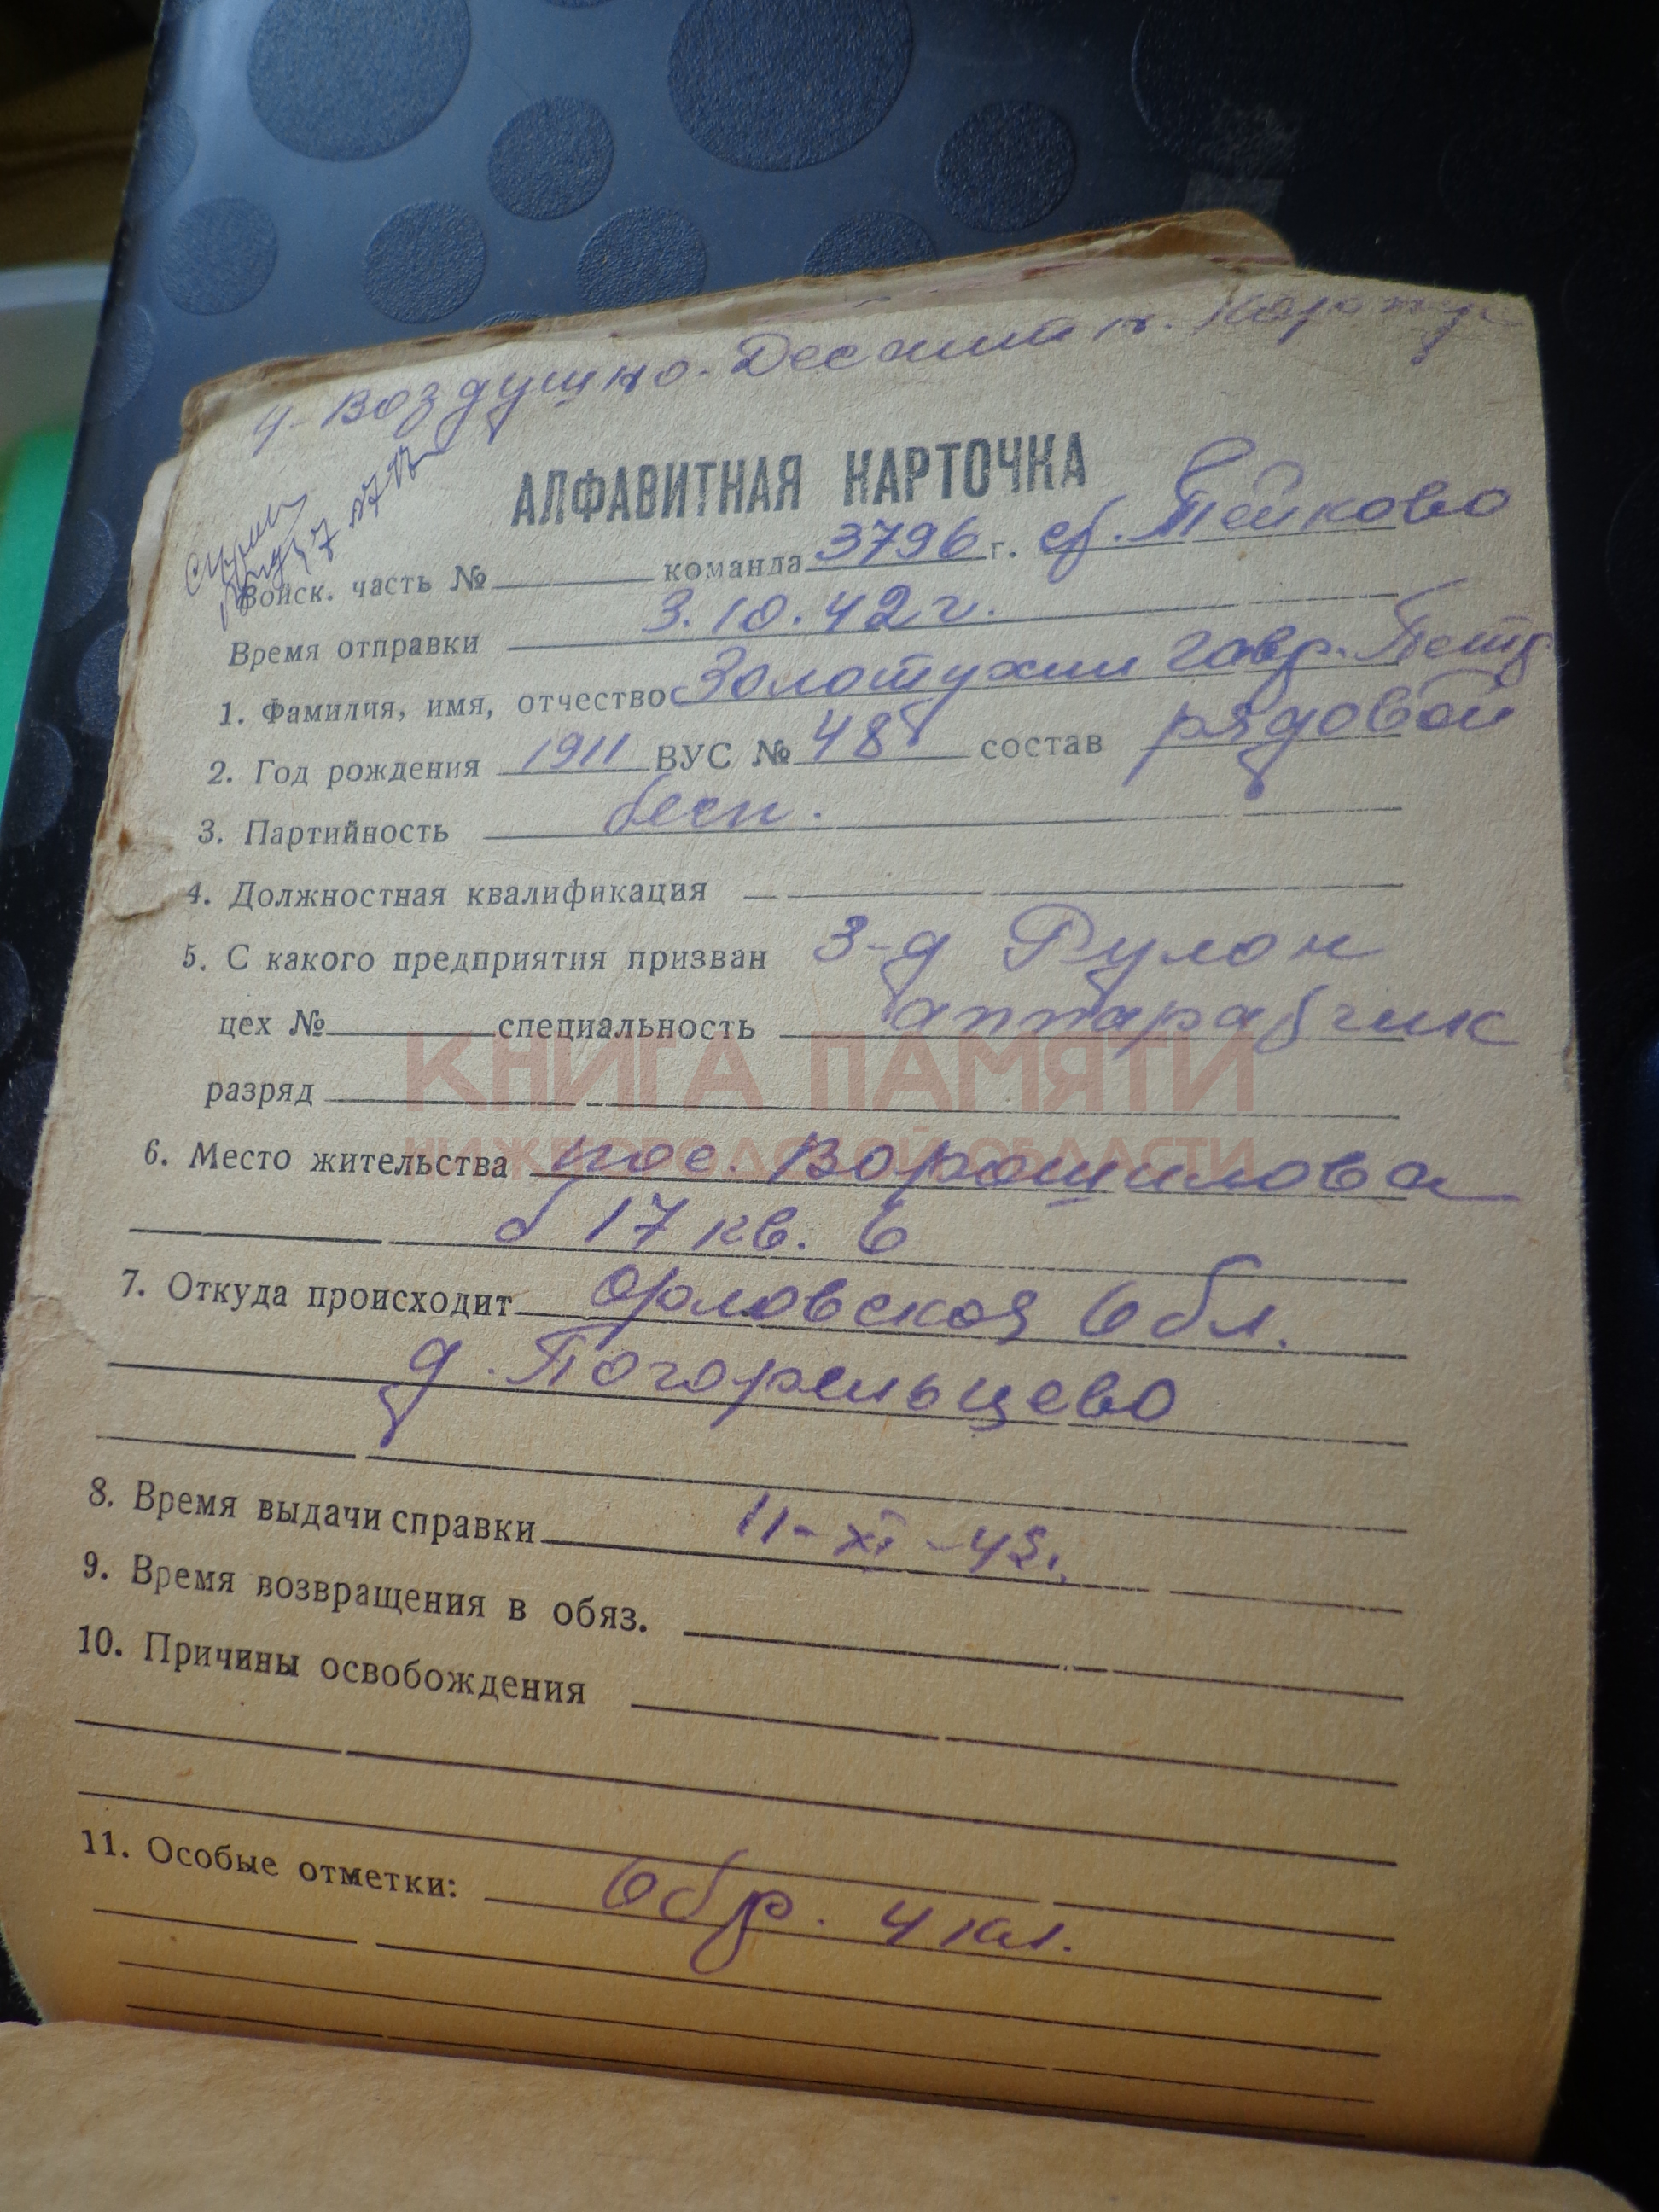 4-Воздушно-Десантн. Корпус
АЛФАВИТНАЯ КАРТОЧКА
Войск. часть № команда 3796 г. ст. Тейково
Время отправки 3.10.42 г.
1. Фамилия, имя, отчество Золотухин Гавр. Петр.
2. Год рождения 1911 ВУС № 48 состав рядовой
3. Партийность бесп.
4. Должностная квалификация
5. С какого предприятия призван 3-д Рулон
цех № специальность аппаратчик
разряд
КНИГА ПАМЯТИ
НИЖЕГОРОДСКОЙ ОБЛАСТИ
6. Место жительства пос. Ворошилова
б 17 кв. 6
7. Откуда происходит Орловская Обл.
д. Погорельцево
8. Время выдачи справки 11-XI-42г.
9. Время возвращения в обяз.
10. Причины освобождения
11. Особые отметки: Обр. 4 кл.